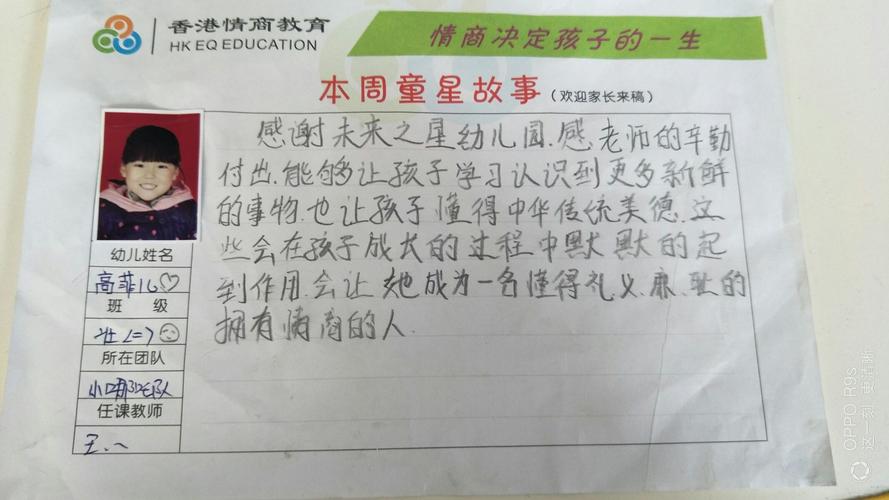 香港情商教育
HK EQ EDUCATION
情商决定孩子的一生
本周童星故事(欢迎家长来稿)
感谢未来之星幼儿园.感老师的辛勤
付出.能够让孩子学习认识到更多新鲜
的事物.也让孩子懂得中华传统美德.这
些会在孩子成长的过程中默默的起
到作用.会让她成为一名懂得礼、义、廉、耻的
拥有情商的人.
幼儿姓名
高菲儿
班 级
所在团队
任课教师
OPPO R9s
这一刻 更清晰